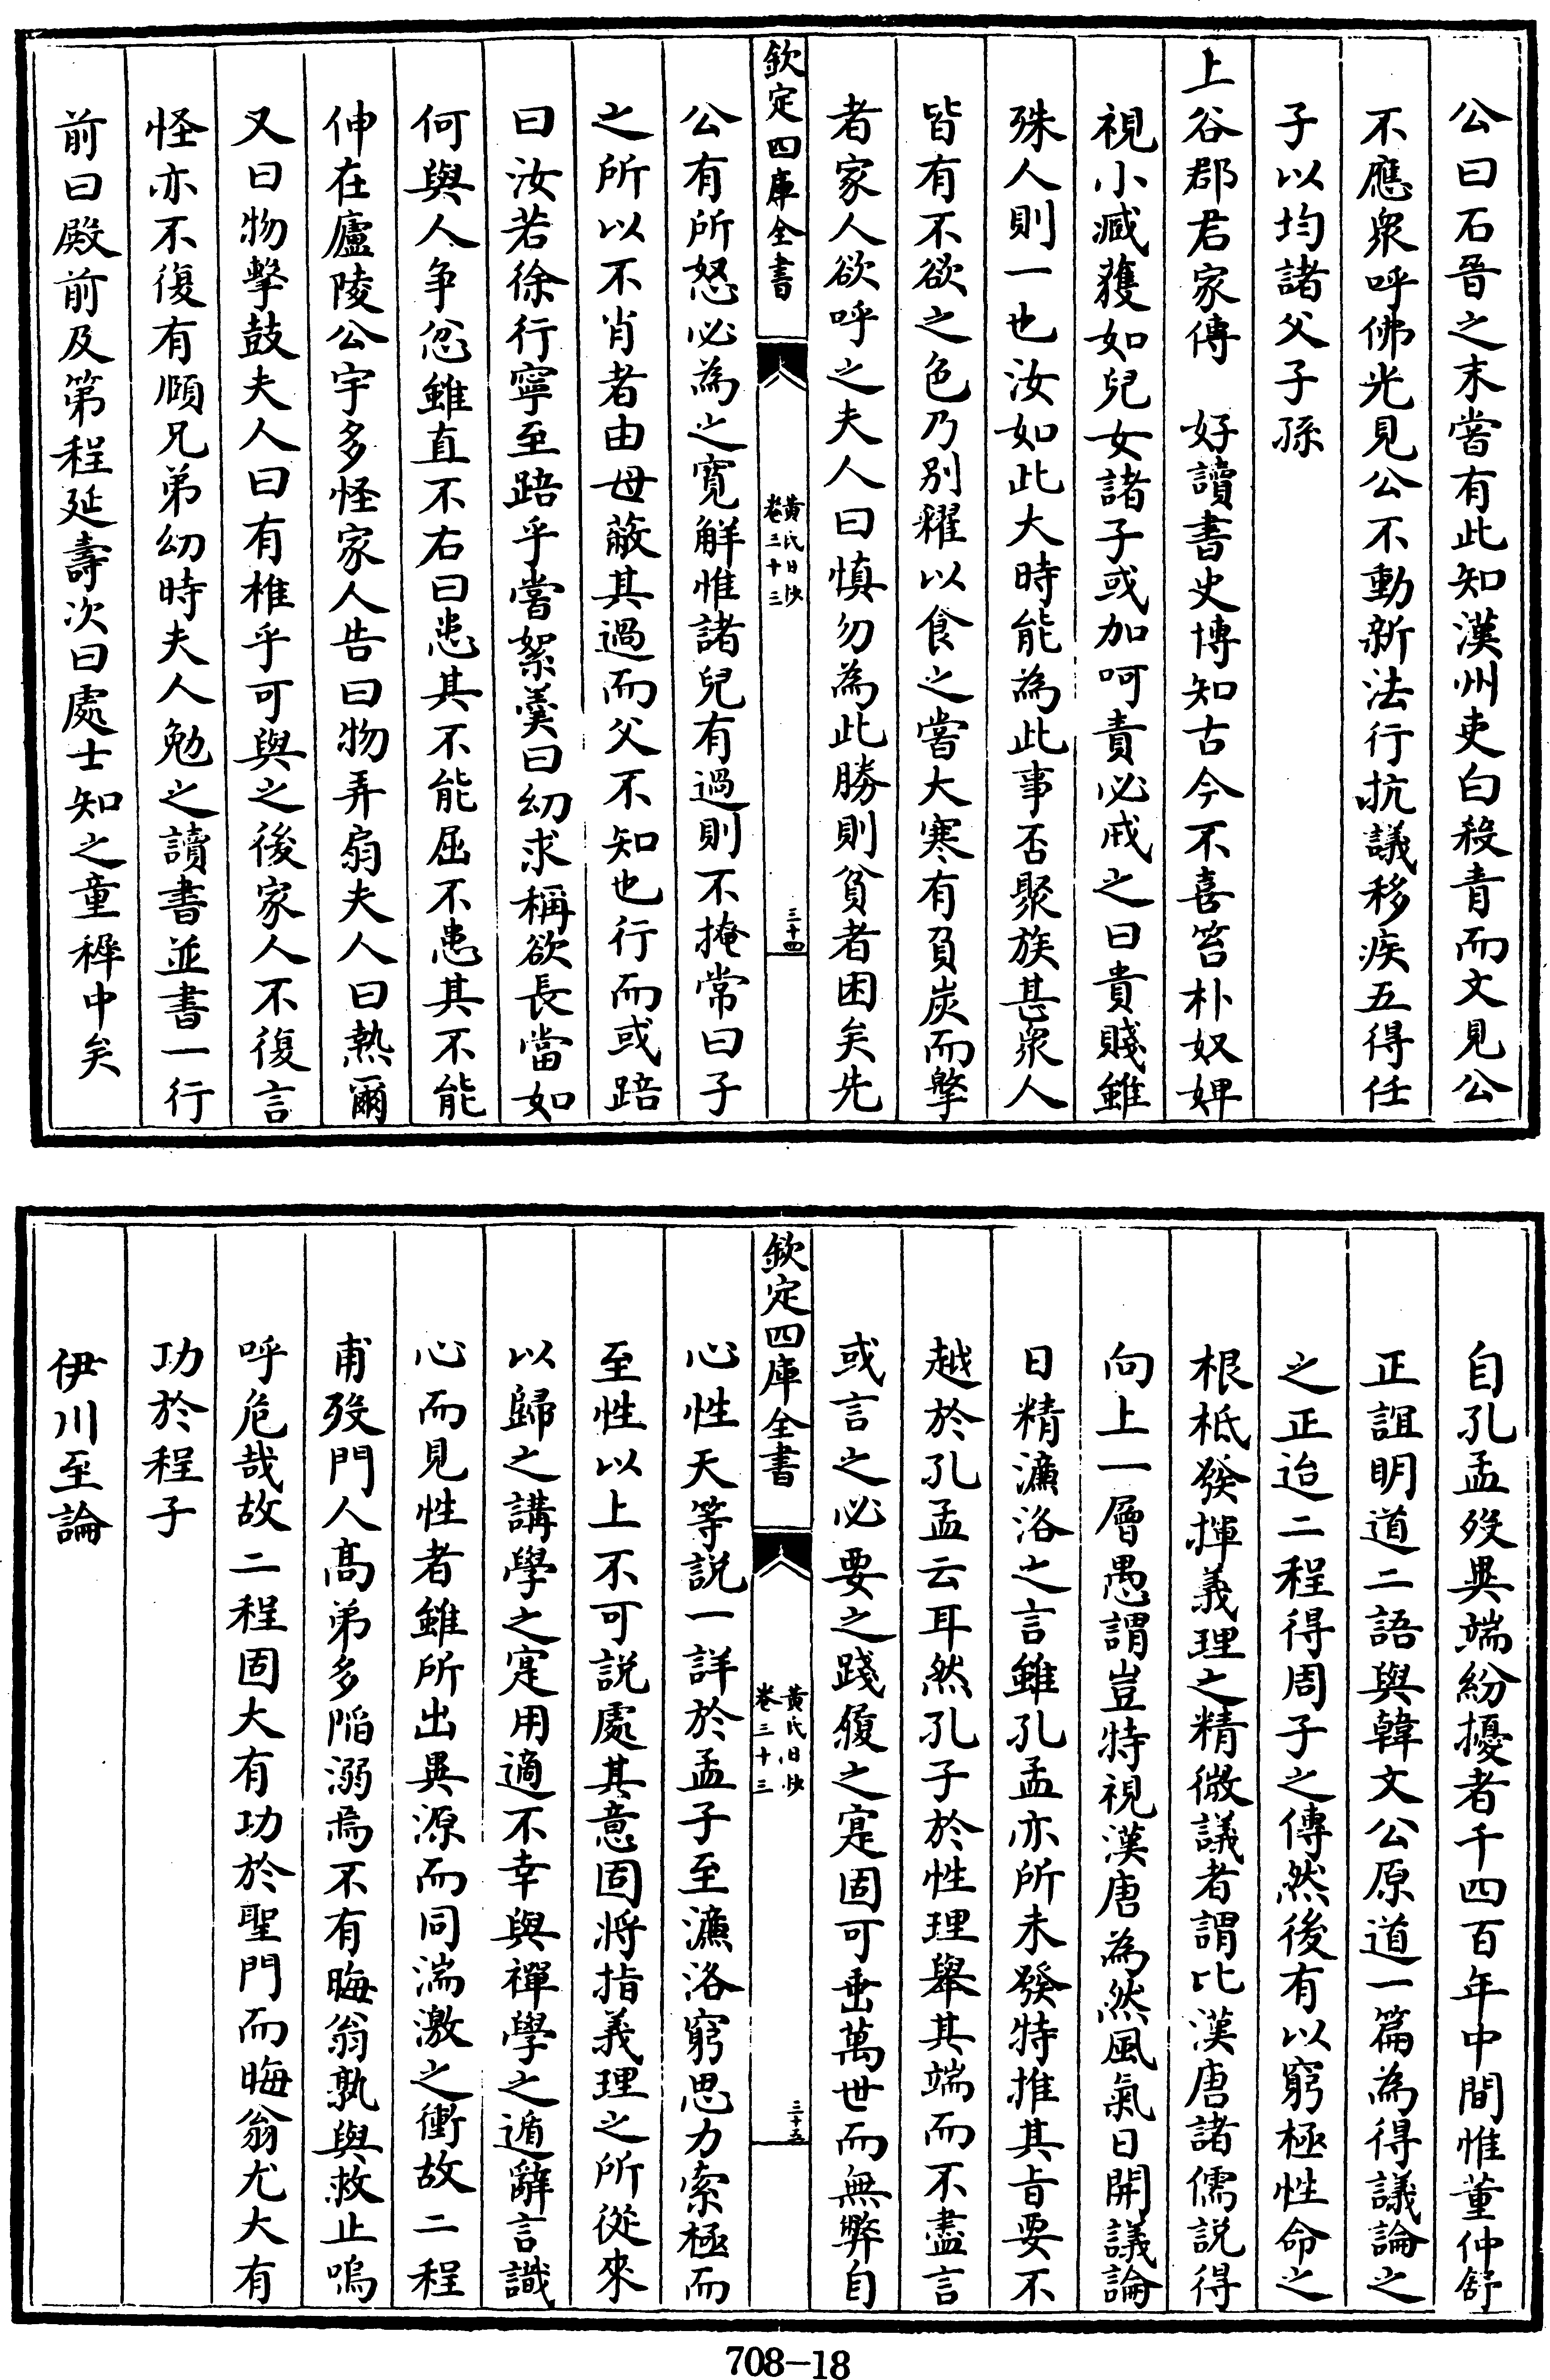 公曰石晉之末嘗有此知漢州吏白殺青而文見公
不應衆呼佛光見公不動新法行抗議移疾五得任
子以均諸父子孫
上谷郡君家傳　好讀書史博知古今不喜笞朴奴婢
視小臧獲如兒女諸子或加呵責必戒之曰貴賤雖
殊人則一也汝如此大時能為此事否聚族甚衆人
皆有不欲之色乃別糴以食之嘗大寒有負炭而擊
者家人欲呼之夫人曰慎勿為此勝則貧者困矣先
欽定四庫全書
黄氏日抄
卷三十三
三十四
公有所怒必為之寛解惟諸兒有過則不掩常曰子
之所以不肖者由母蔽其過而父不知也行而或踣
曰汝若徐行寧至踣乎嘗絮羹曰幼求稱欲長當如
何與人争忿雖直不右曰患其不能屈不患其不能
伸在廬陵公宇多怪家人告曰物弄扇夫人曰熱爾
又曰物擊鼓夫人曰有椎乎可與之後家人不復言
怪亦不復有頤兄弟幼時夫人勉之讀書並書一行
前曰殿前及第程延壽次曰處士知之童穉中矣
自孔孟歿異端紛擾者千四百年中間惟董仲舒
正誼明道二語與韓文公原道一篇為得議論之
之正迨二程得周子之傳然後有以窮極性命之
根柢發揮義理之精微議者謂比漢唐諸儒説得
向上一層愚謂豈特視漢唐為然風氣日開議論
日精濂洛之言雖孔孟亦所未發特推其旨要不
越於孔孟云耳然孔子於性理舉其端而不盡言
或言之必要之踐履之寔固可垂萬世而無弊自
欽定四庫全書
黄氏日抄
卷三十三
三十五
心性天等説一詳於孟子至濂洛窮思力索極而
至性以上不可説處其意固將指義理之所從來
以歸之講學之寔用適不幸與禪學之遁辭言識
心而見性者雖所出異源而同湍激之衝故二程
甫歿門人髙弟多陷溺焉不有晦翁孰與救止嗚
呼危哉故二程固大有功於聖門而晦翁尤大有
功於程子
伊川至論
708-18